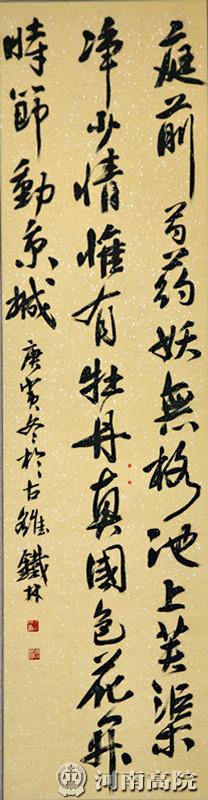 庭前芍药妖無格池上芙渠
净少情惟有牡丹真國色花开
時節動京城 庚寅冬於古雒 鐵林
河南高院